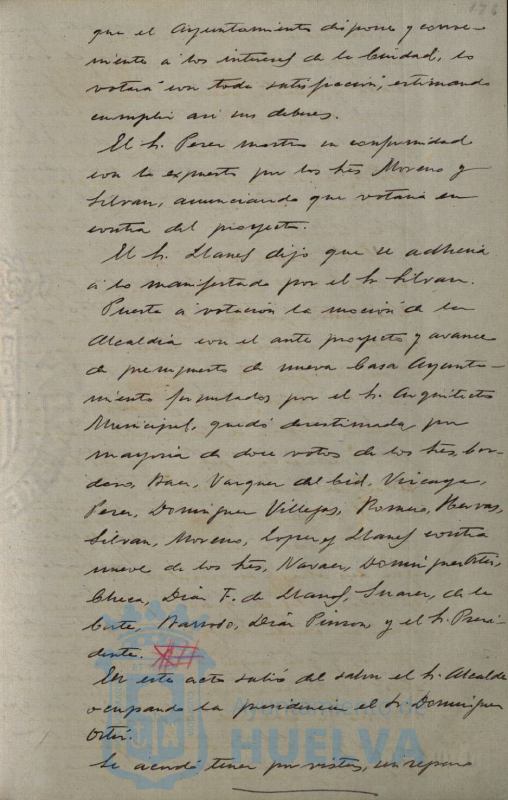 176
que el Ayuntamiento dispone y conve-
niente á los intereses de la Ciudad, lo
votará con toda satisfacción, estimando
cumplir asi sus deberes.
El Sr. Perez mostró su conformidad
con lo expuesto por los Sres Moreno y
Silvan, anunciando que votaria en
contra del proyecto.
El Sr. Llanes dijo que se adheria
á lo manifestado por el Sr Silvan.
Puesta á votación la moción de la
Alcaldia con el ante proyecto y avance
de presupuesto de nueva Casa Ayunta-
miento formulados por el Sr. Arquitecto
Municipal, quedó desestimada por
mayoria de doce votos de los Sres, Cor-
dero, Baez, Vazquez del Cid, Vizcaya,
Perez, Dominguez Villegas, Romero, Hervas,
Silvan, Moreno, Lopez y Llanes contra
nueve de los Sres, Navaer, Dominguez Ortiz,
Checa, Diaz F. de Llanos, Suarez, de la
Corte, Barroso, Diáz Pinzon y el Sr. Presi-
dente.
En este acto salió del salon el Sr. Alcalde
ocupando la presidencia el Sr. Dominguez
Ortiz.
Se acordó tener por vistas, sin reparo
Ayuntamiento de
HUELVA